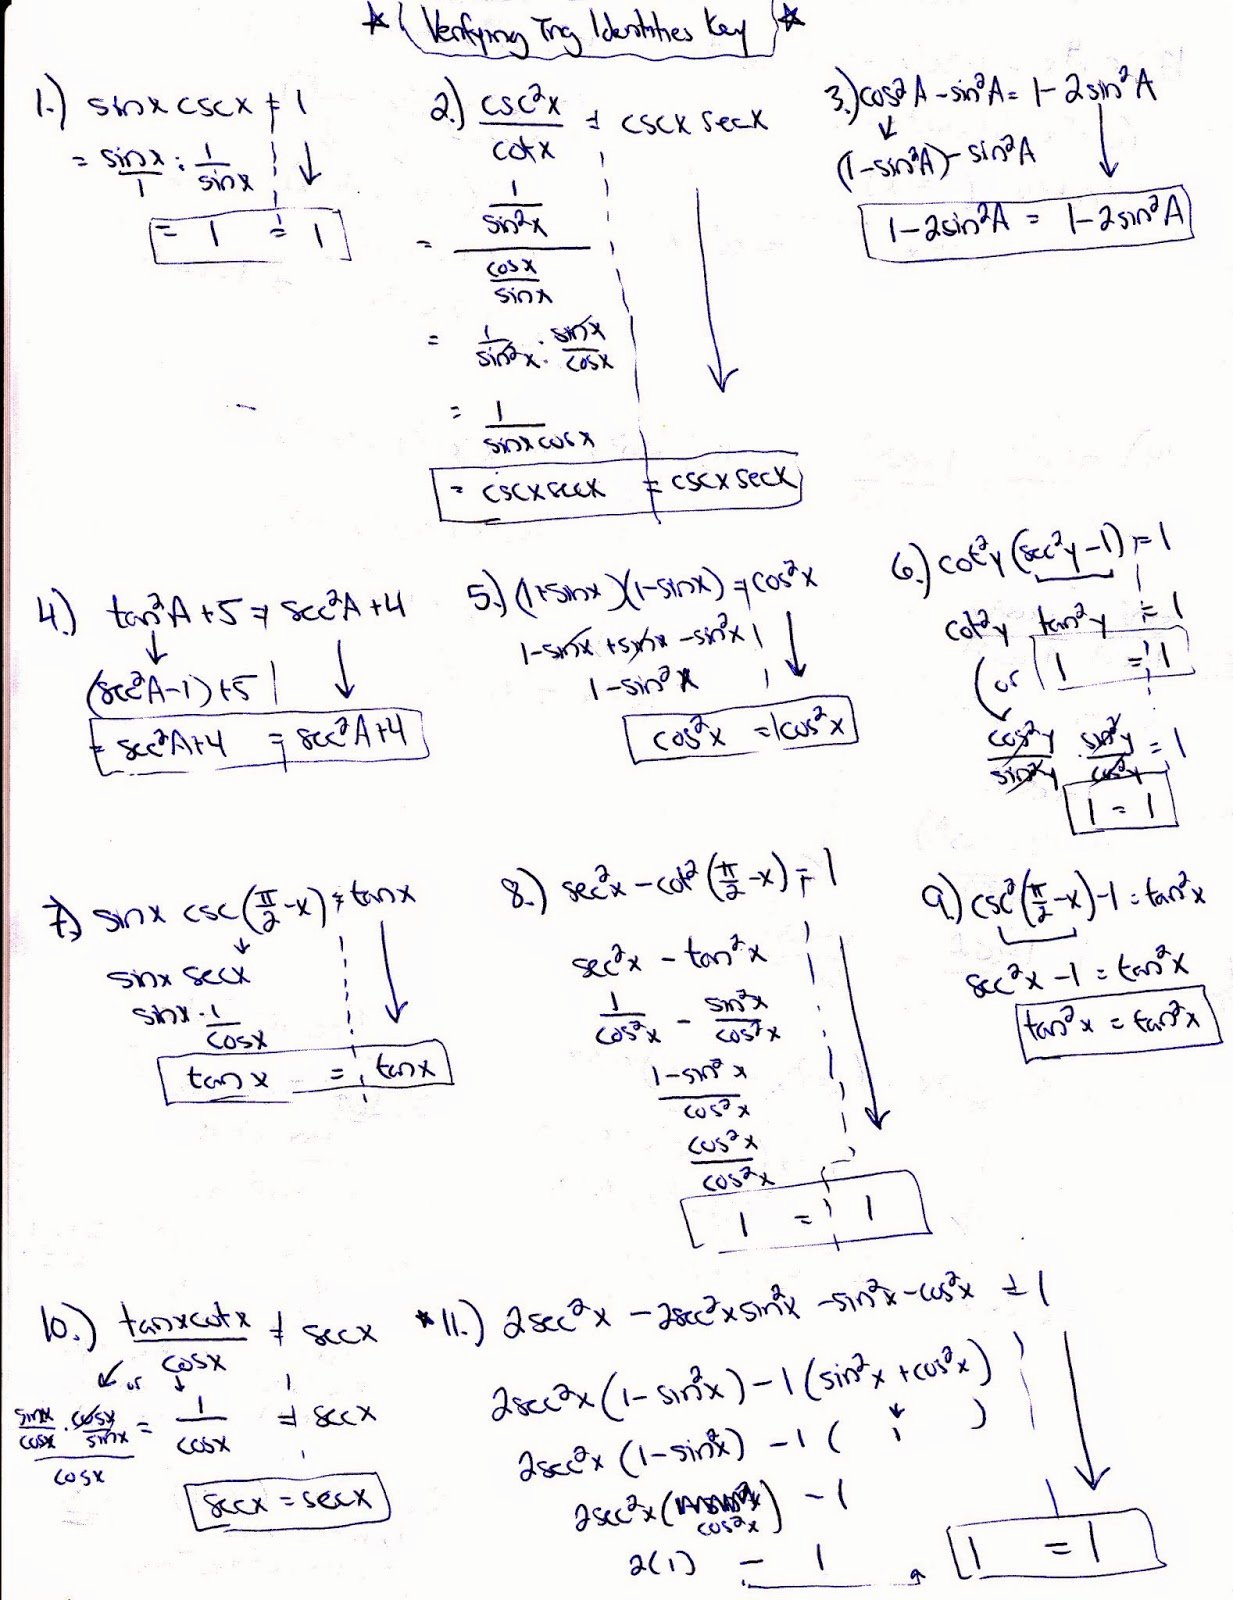 ★ Verifying Trig Identities Key ★
1.) sinx cscx = 1
= sinx/1 · 1/sinx
= 1 = 1
2.) csc²x/cotx = cscx secx
= (1/sin²x)/(cosx/sinx)
= 1/sin²x · sinx/cosx
= 1/sinxcosx
= cscxsecx = cscxsecx
3.) cos²A - sin²A = 1-2sin²A
(1-sin²A) - sin²A
1-2sin²A = 1-2sin²A
4.) tan²A+5 = sec²A+4
(sec²A-1)+5
= sec²A+4 = sec²A+4
5.) (1+sinx)(1-sinx) = cos²x
1-sinx+sinx-sin²x
1-sin²x
cos²x = cos²x
6.) cot²y(sec²y-1) = 1
cot²y tan²y = 1
(or 1 = 1
cos²y/sin²y · sin²y/cos²y = 1
1 = 1
7.) sinx csc(π/2-x) = tanx
sinx secx
sinx · 1/cosx
tanx = tanx
8.) sec²x - cot²(π/2-x) = 1
sec²x - tan²x
1/cos²x - sin²x/cos²x
1-sin²x/cos²x
cos²x/cos²x
1 = 1
9.) csc²(π/2-x)-1 = tan²x
sec²x-1 = tan²x
tan²x = tan²x
10.) tanxcotx/cosx = secx
or
(sinx/cosx · cosx/sinx)/cosx = 1/cosx = secx
secx = secx
*11.) 2sec²x - 2sec²xsin²x - sin²x - cos²x = 1
2sec²x(1-sin²x) - 1(sin²x+cos²x)
2sec²x(1-sin²x) - 1( 1 )
2sec²x(cos²x) - 1
2(1) - 1
1 = 1